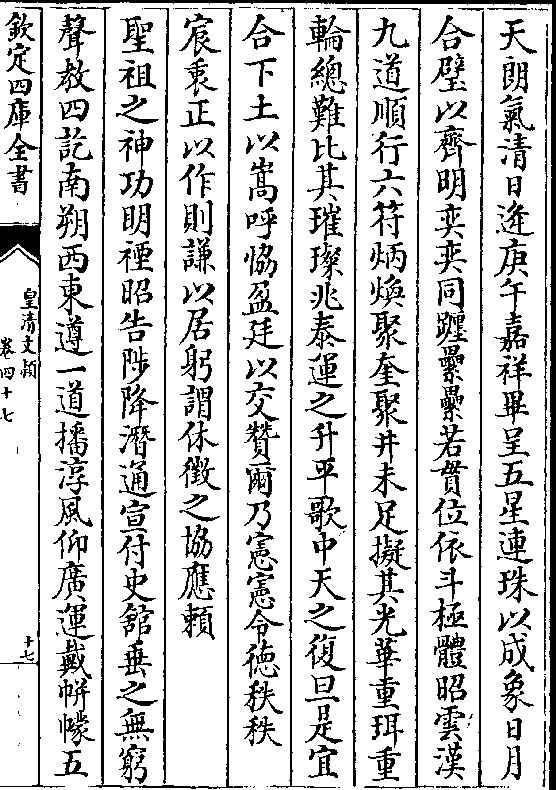 天朗氣清日逢庚午嘉祥畢呈五星連珠以成象日月
合璧以齊明奕奕同躔纍纍若貫位依斗極體昭雲漢
九道順行六符炳煥聚奎聚井未足擬其光華重珥重
輪總難比其璀璨兆泰運之升平歌中天之復旦是宜
合下土以嵩呼協盈廷以交贊爾乃憲憲令徳秩秩
宸衷正以作則謙以居躬謂休徵之協應頼
聖祖之神功明禋昭告陟降潛通宣付史館垂之無窮
聲教四訖南朔西東遵一道播淳風仰廣運戴帡幪五
欽定四庫全書
皇清文穎
卷四十七
十七